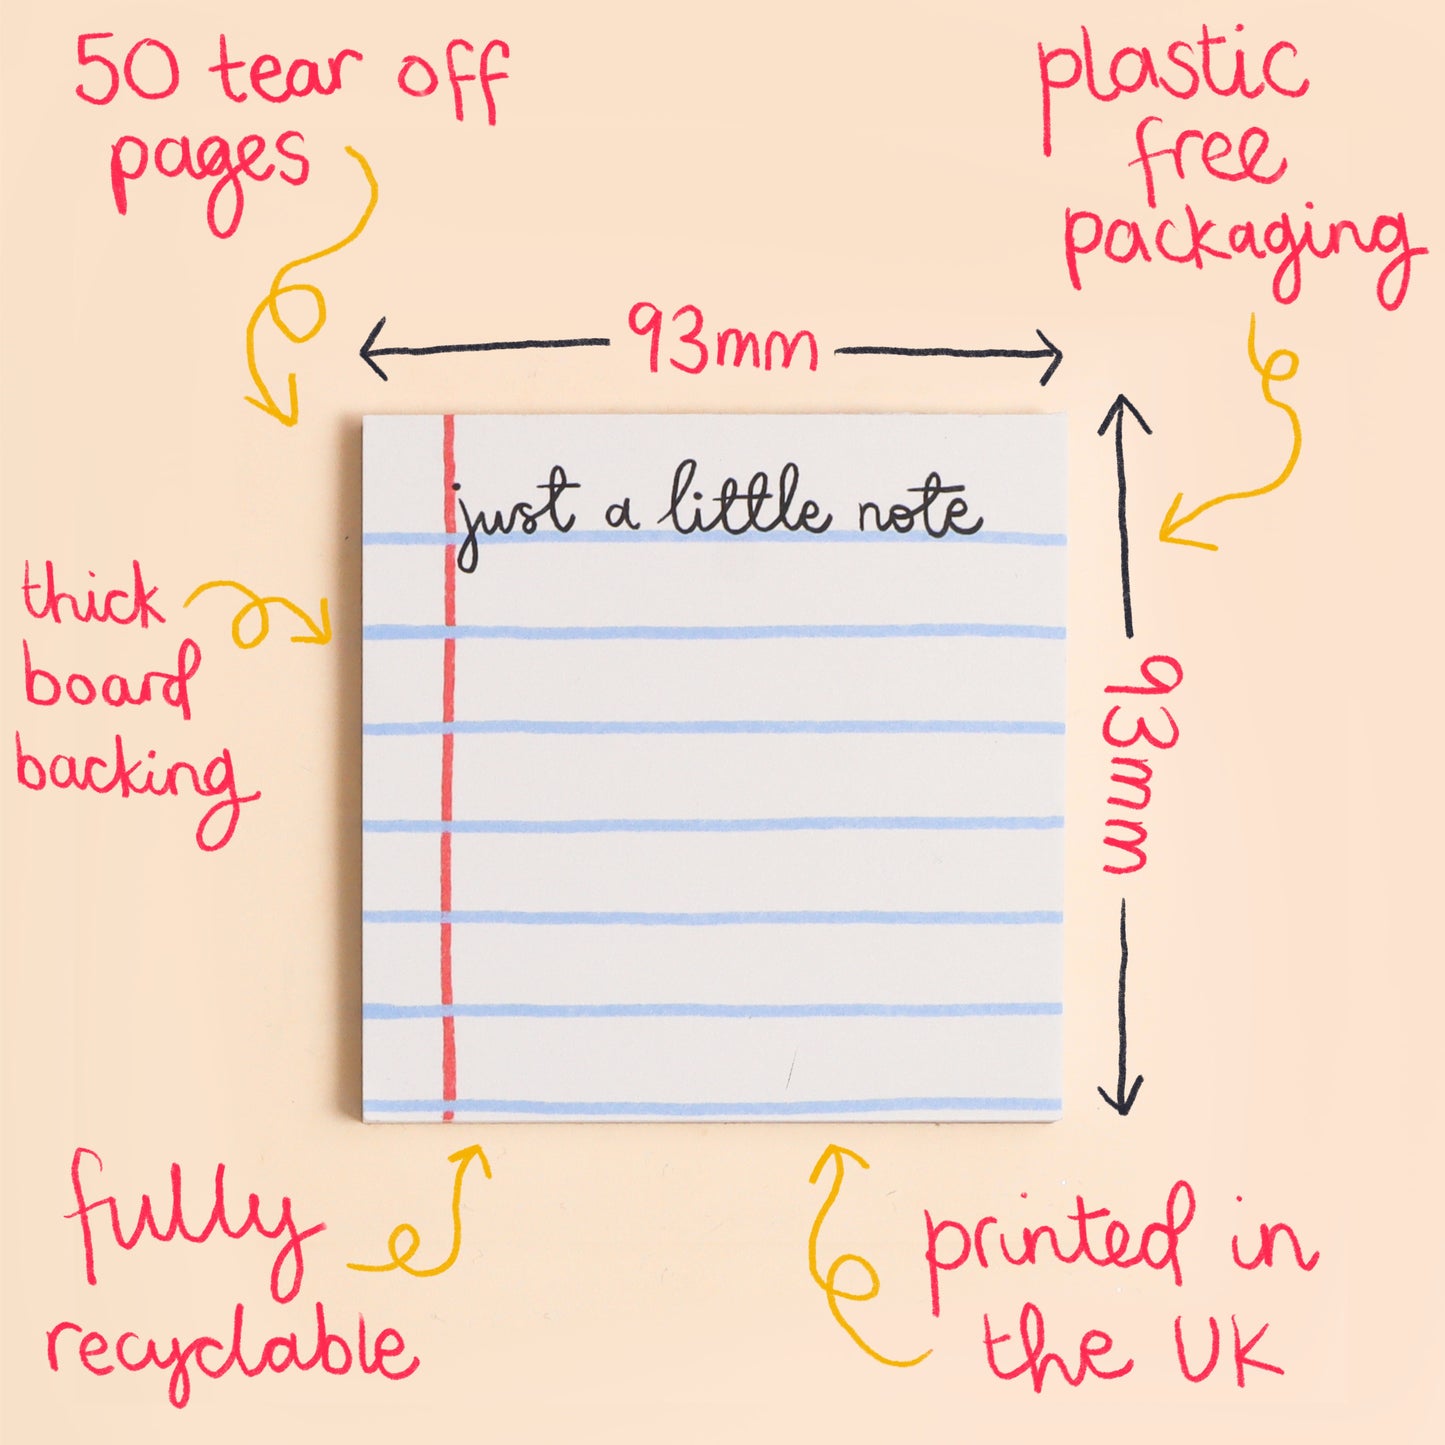 50 tear off
pages
plastic
free
packaging
93mm
just a little note
thick
board
backing
93mm
fully
recyclable
printed in
the UK